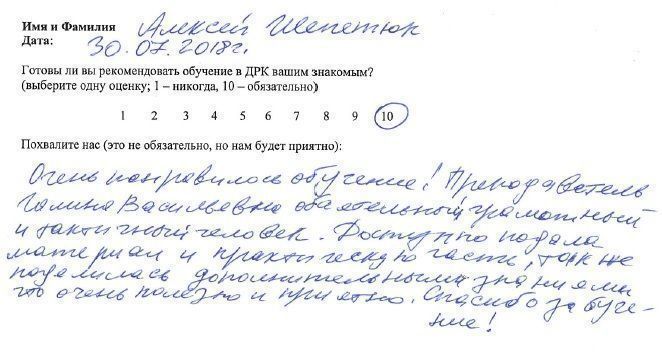 Имя и Фамилия Алексей Шепетюк
Дата: 30.07.2018г.
Готовы ли вы рекомендовать обучение в ДРК вашим знакомым?
(выберите одну оценку; 1 – никогда, 10 – обязательно)
1 2 3 4 5 6 7 8 9 10
Похвалите нас (это не обязательно, но нам будет приятно):
Очень понравилось обучение! Преподаватель
Галина Васильевна обаятельный, грамотный
и тактичный человек. Доступно подала
материал и практическую части, так же
поделилась дополнительными знаниями
что очень полезно и приятно. Спасибо за обуче-
ние!